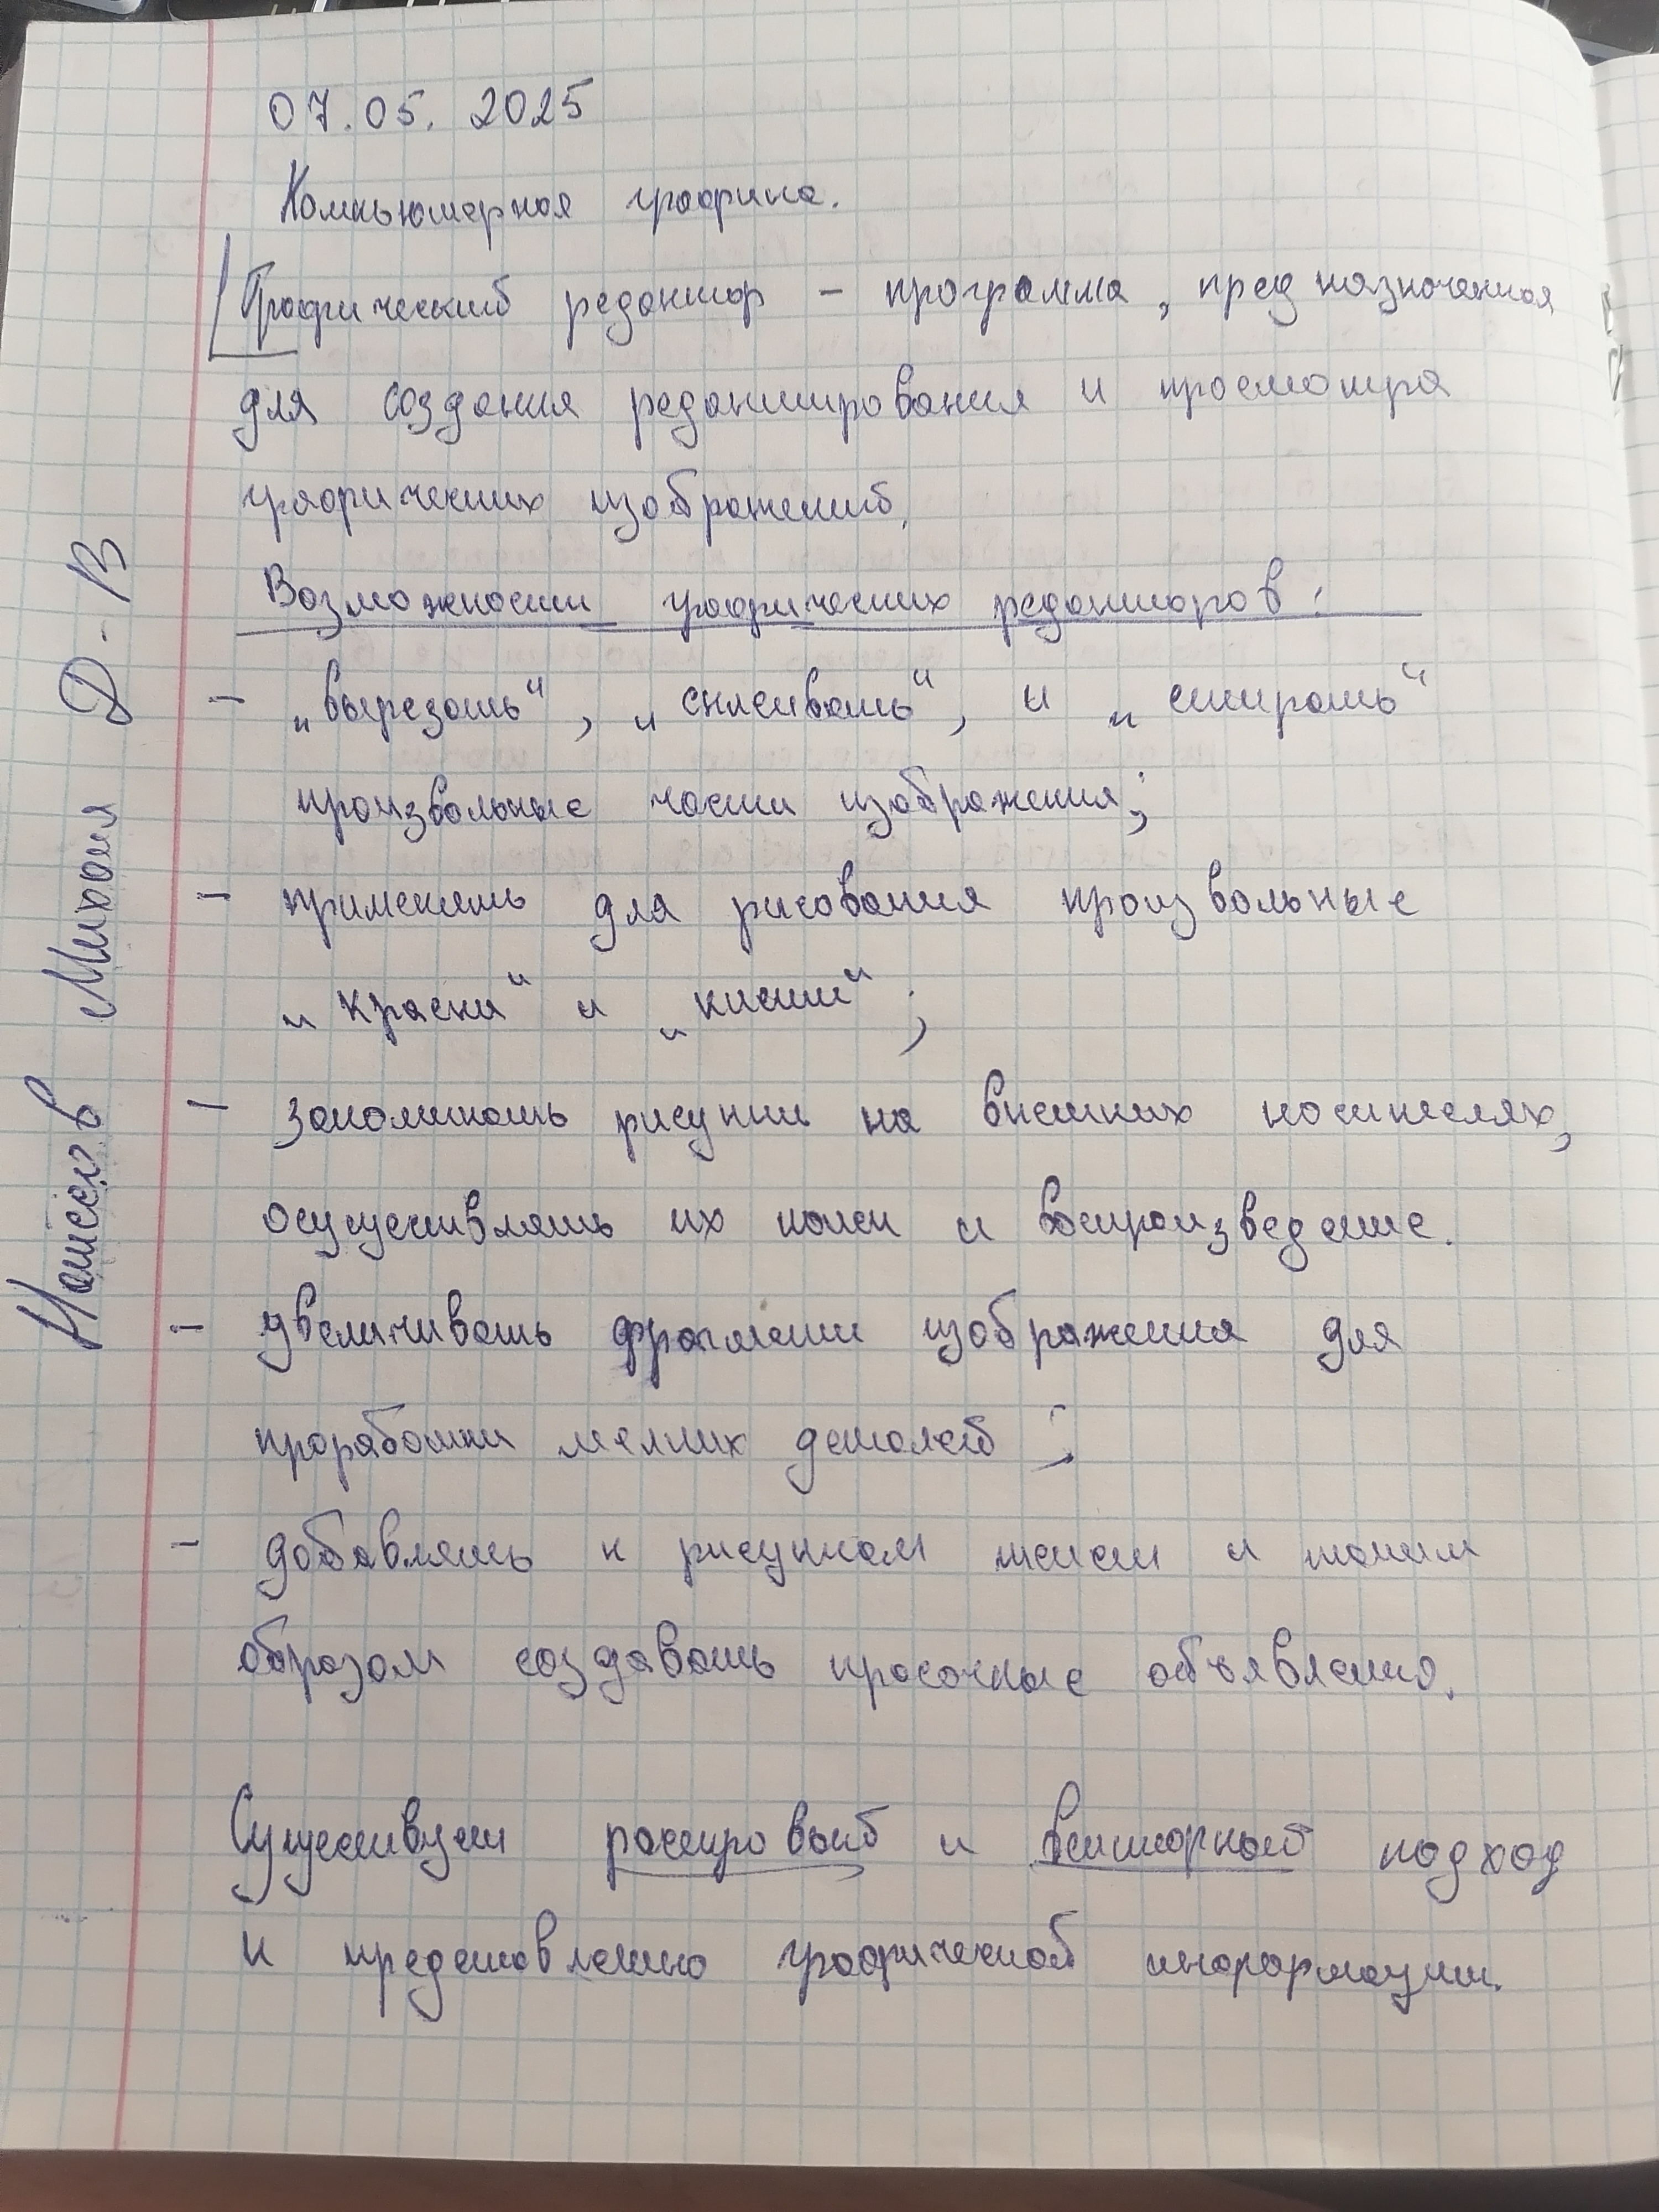 07.05.2025
Компьютерная графика.
Графический редактор – программа, предназначенная
для создания редактирования и просмотра
графических изображений.
Возможности графических редакторов:
– „вырезать“, „склеивать“, и „стирать“
произвольные части изображения;
– применять для рисования произвольные
„краски“ и „кисти“;
– запоминать рисунки на внешних носителях,
осуществлять их поиск и воспроизведение.
– увеличивать фрагменты изображения для
проработки мелких деталей;
– добавлять к рисункам текст и таким
образом создавать красочные объявления.
Существует растровый и векторный подход
к представлению графической информации.
Д-В